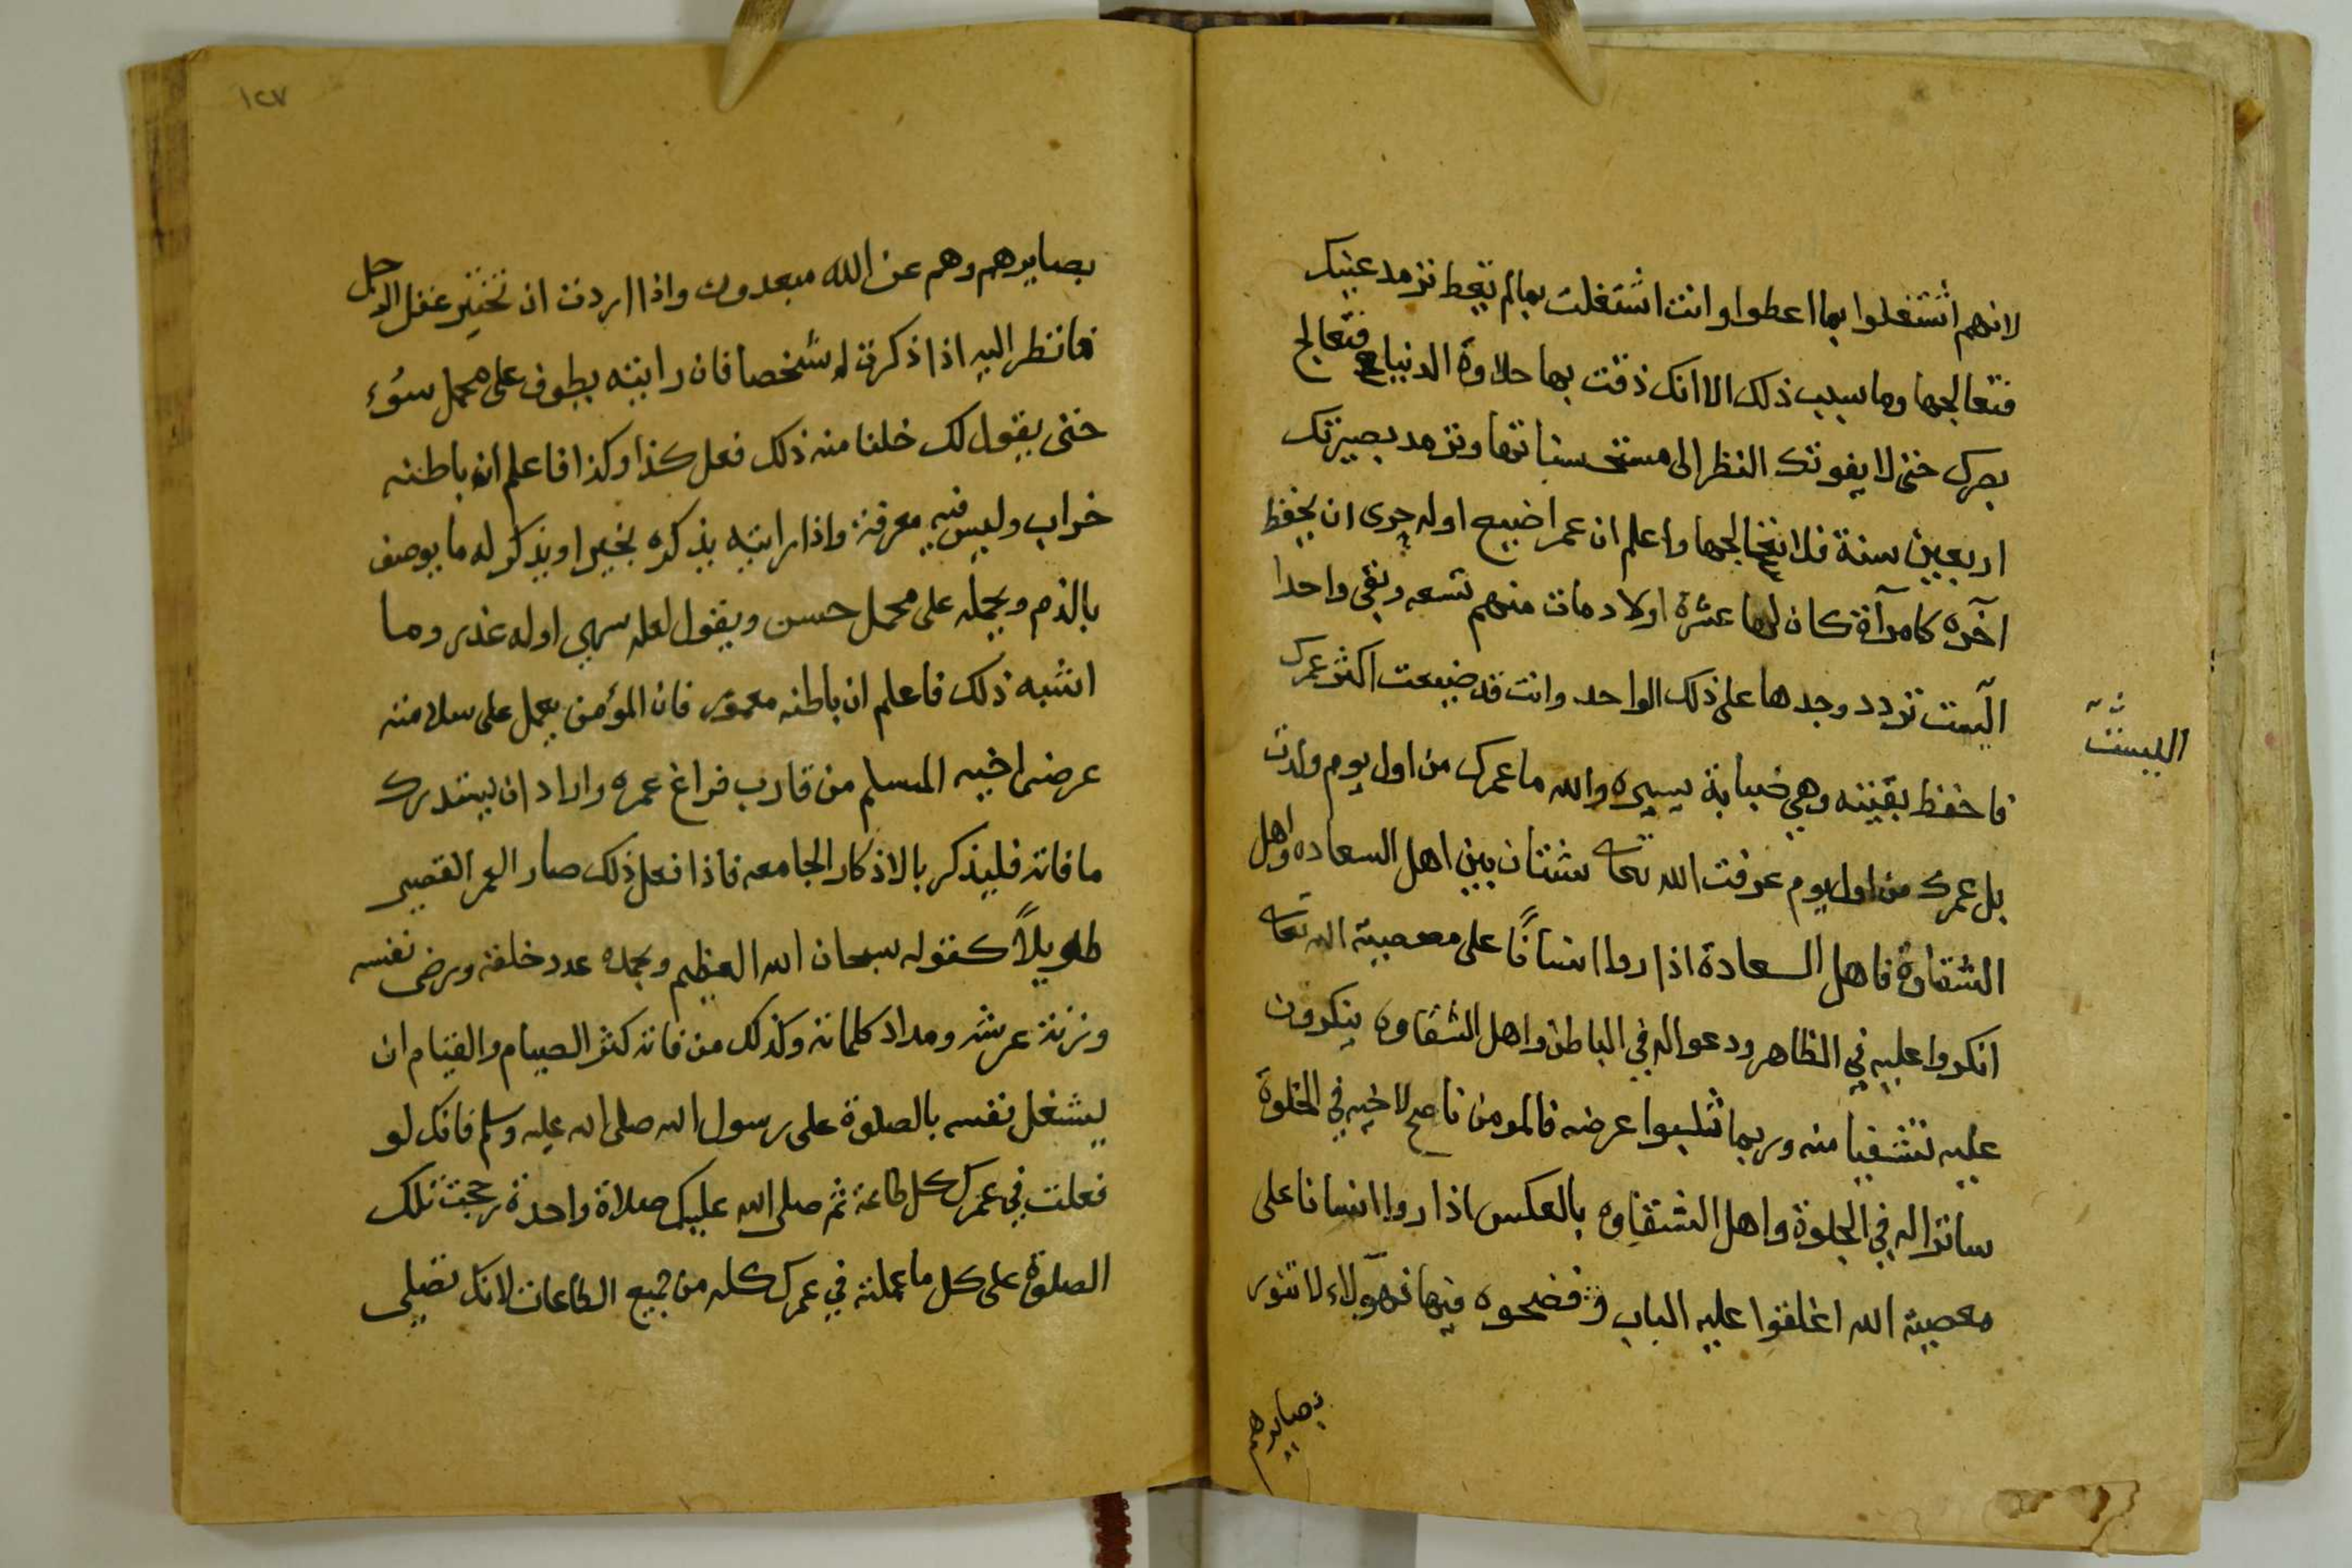 لانهم أشتغلوا بما اعطوا وانت اشتغلت بمالم تعط تزمد عينيك
فتعالجها وما سبب ذلك الا انك ذقت بها حلاوة الدنيا فتعالج
بصرك حتى لا يفوتك النظر الى مستحسناتها وتزمد بصيرتك
اربعين سنة فلا تعالجها واعلم ان عمرا ضيع اوله حرى ان يحفظ
آخره كامرآة كان لها عشرة اولاد مات منهم تسعه وبقي واحدا
اليست تردد وجدها على ذلك الواحد وانت قد ضيعت اكثر عمرك
فاحفظ بقيته وهي ضبابة يسيره والله ما عمرك من اول يوم ولدت
بل عمرك من اول يوم عرفت الله تعالى شتان بين اهل السعاده واهل
الشقاوة فاهل السعادة اذا روا انسانًا على معصية الله تعالى
انكروا عليه في الظاهر ودعوا له في الباطن واهل الشقاوه ينكرون
عليه تشفيا منه وربما ثلبوا عرضه فالمومن ناصح لاخيه في الخلوة
ساترا له في الجلوة واهل الشقاوه بالعكس اذا روا انسانا على
معصية الله اغلقوا عليه الباب وفضحوه فيها فهؤلاء لا تنور
بصايرهم
اليست
١٢٧
بصايرهم وهم عن الله مبعدون واذا اردت ان تختبر عقل الرجل
فانظر اليه اذا ذكرت له شخصا فان رايته يطوف على محمل سوء
حتى يقول لك خلنا منه ذلك فعل كذا وكذا فاعلم ان باطنه
خراب وليس فيه معرفة واذا رايته يذكره بخير او يذكر له ما يوصف
بالذم ويحمله على محمل حسن ويقول لعله سهي او له عذر وما
اشبه ذلك فاعلم ان باطنه معمور فان المؤمن يعمل على سلامته
عرض اخيه المسلم من قارب فراغ عمره واراد ان يستدرك
ما فاته فليذكر بالاذكار الجامعه فاذا فعل ذلك صار العمر القصير
طويلاً كقوله سبحان الله العظيم وبحمده عدد خلقه ورضى نفسه
وزنة عرشه ومداد كلماته وكذلك من فاته كثر الصيام والقيام ان
ليشغل نفسه بالصلوة على رسول الله صلى الله عليه وسلم فانك لو
فعلت في عمرك كل طاعة ثم صلى الله عليك صلاة واحدة رجحت تلك
الصلوة على كل ما عملته في عمرك كله من جميع الطاعات لانك تصلي